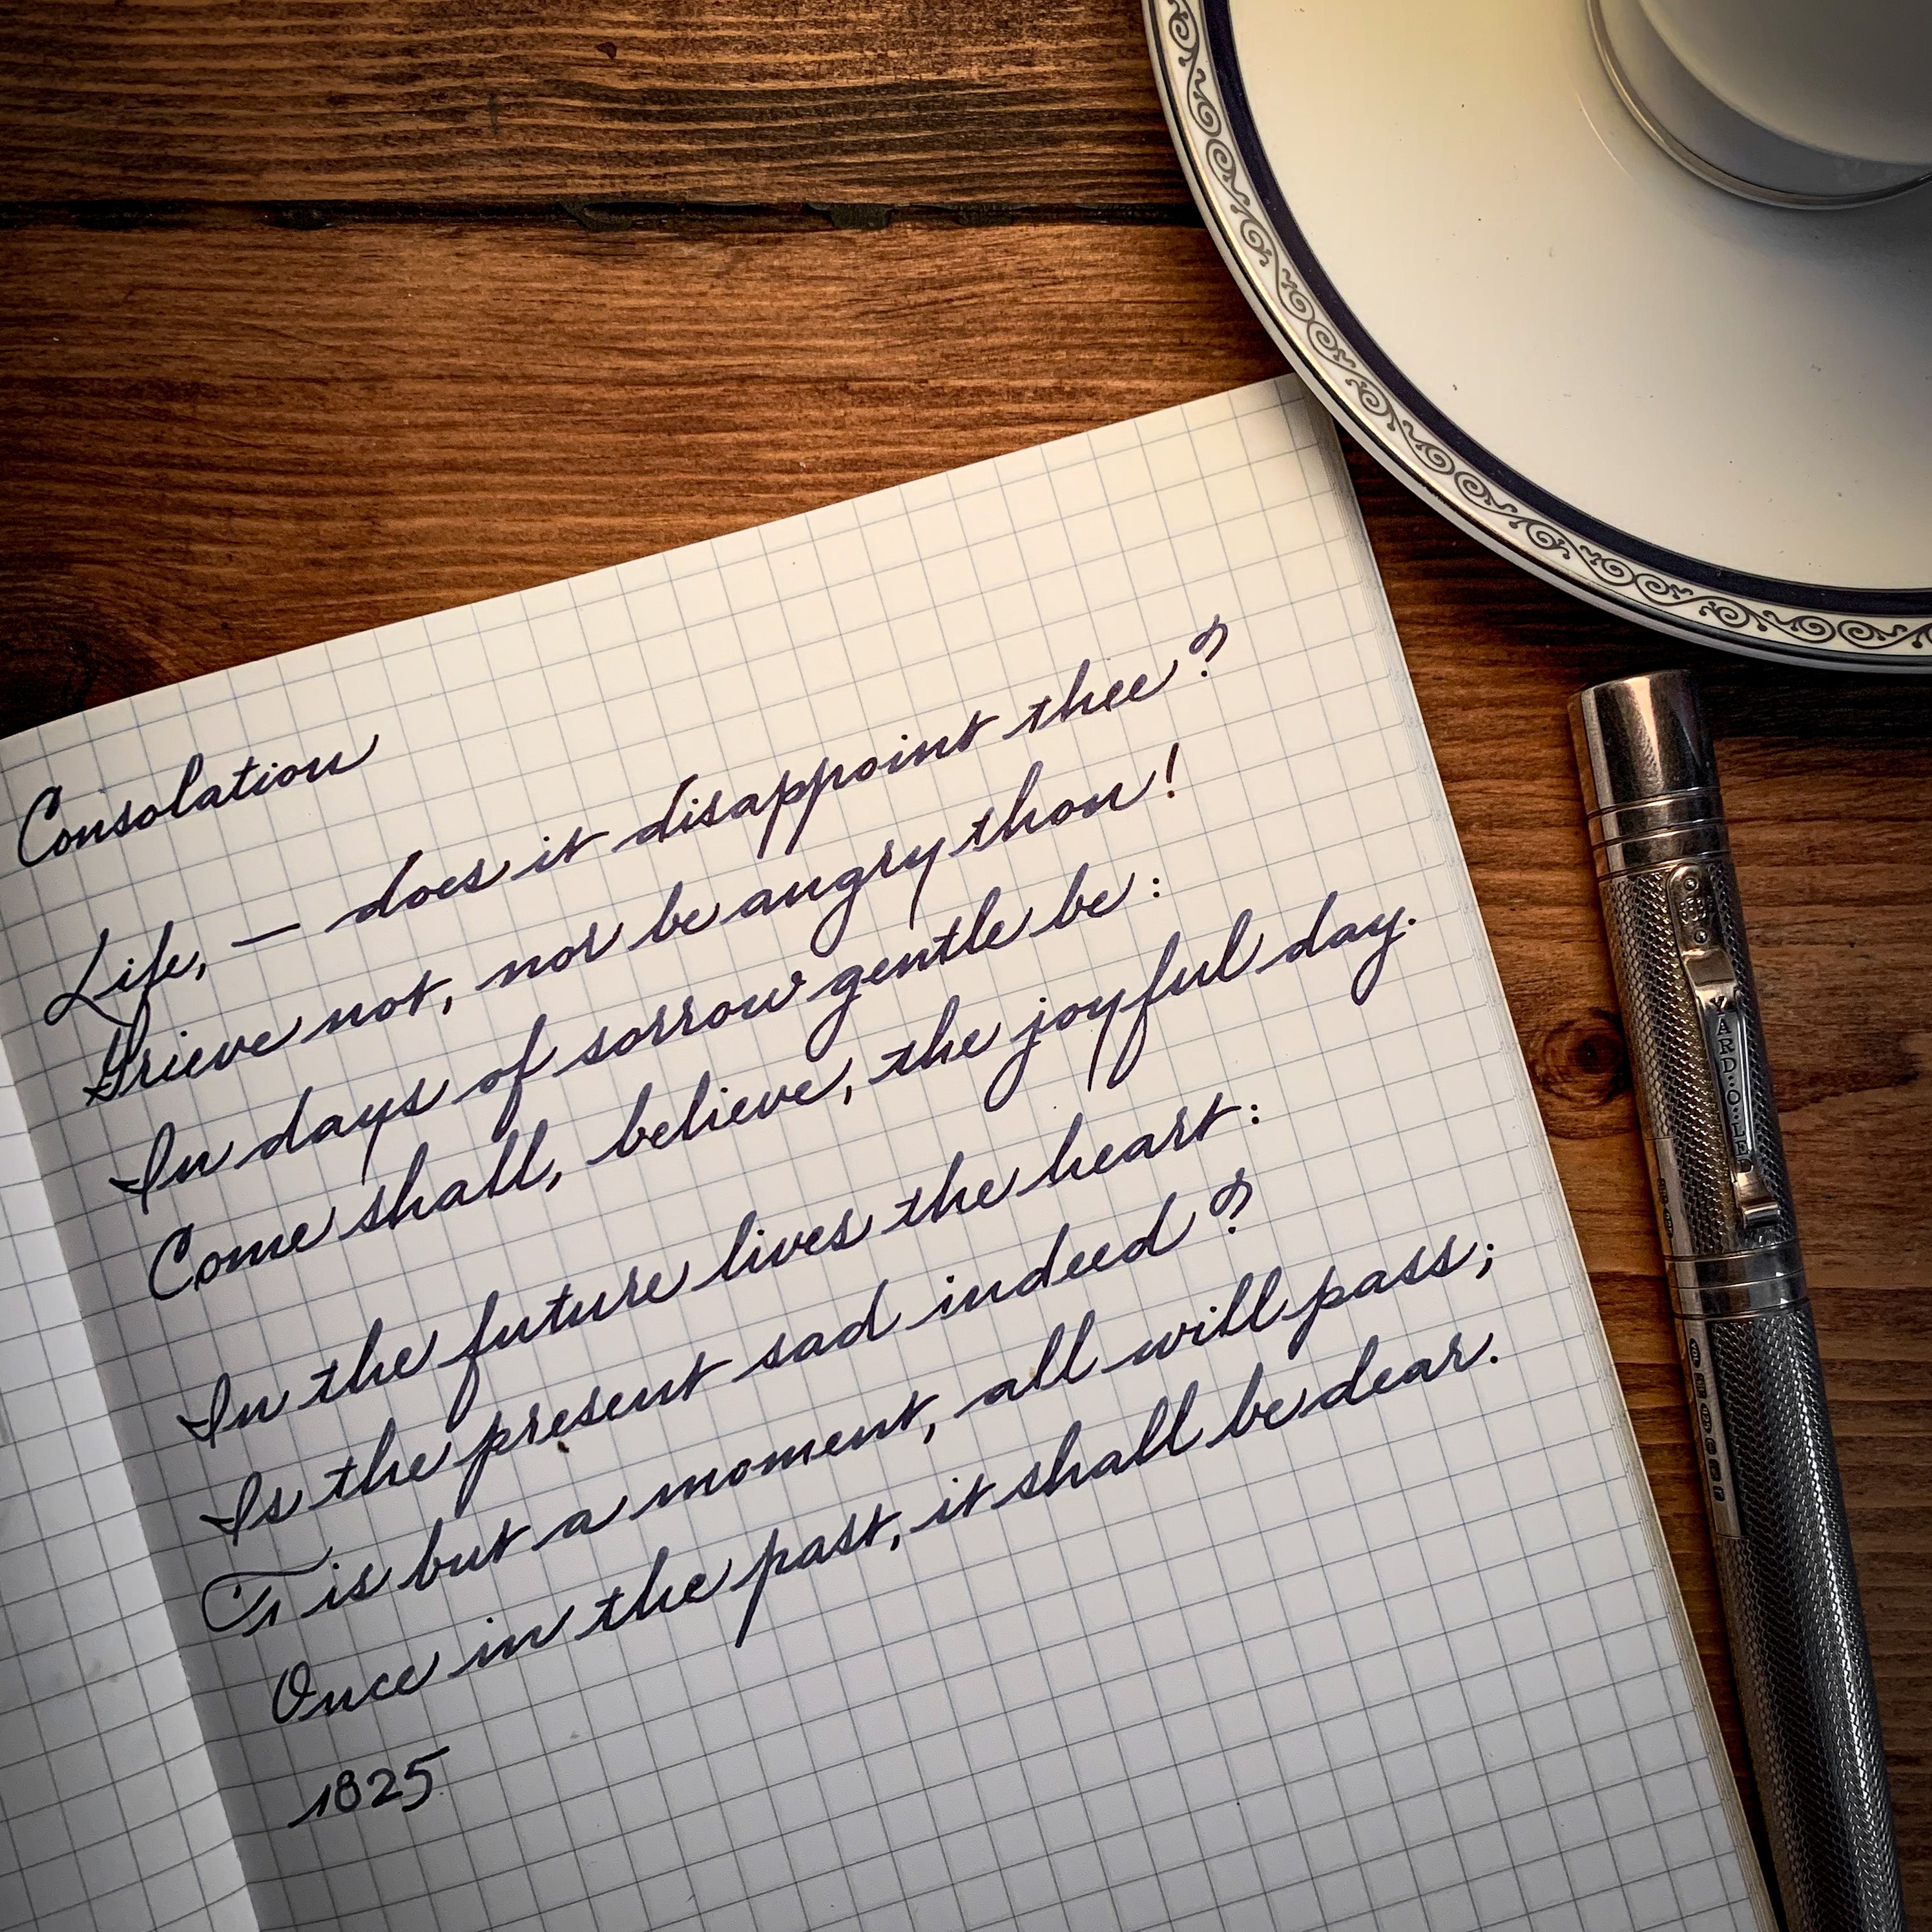 Consolation
Life, — does it disappoint thee?
Grieve not, nor be angry thou!
In days of sorrow gentle be:
Come shall, believe, the joyful day.
In the future lives the heart:
Is the present sad indeed?
'T is but a moment, all will pass;
Once in the past, it shall be dear.
1825
YARD·O·LED